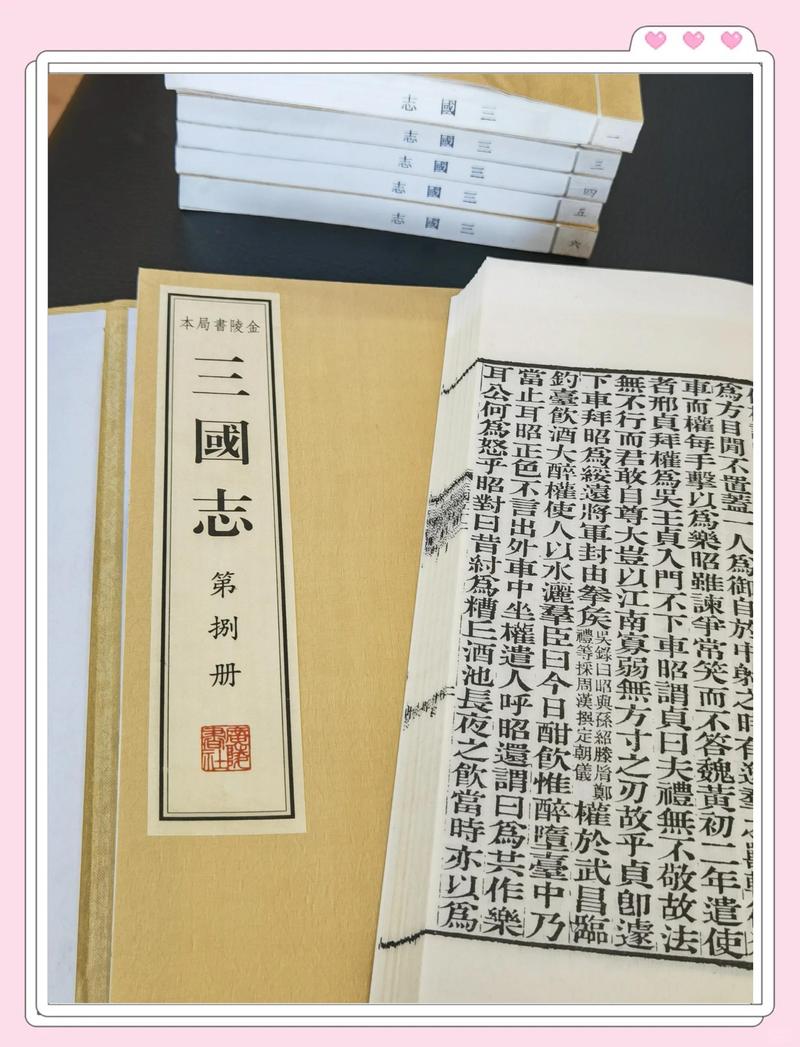 三國志 一
三國志 三
三國志 四
三國志 五
三國志 六
金陵書局本
三國志
第捌册
廣陵書社
為方目閒不置蓋一人為御自於中射之時有逸羣之獸輒復
車而權每手擊以為樂昭雖諫爭常笑而不答魏黃初二年遣使
者邢貞拜權為吳王貞入門不下車昭謂貞曰夫禮無不敬故法
無不行而君敢自尊大豈以江南寡弱無方寸之刃故乎貞卽遽
下車拜昭為綏遠將軍封由拳矦吳錄曰昭與孫紹滕胤鄭禮等採周漢撰定朝儀權於武昌臨
釣臺飲酒大醉權使人以水灑羣臣曰今日酣飲惟醉墮臺中乃
當止耳昭正色不言出外車中坐權遣人呼昭還謂曰為共作樂
耳公何為怒乎昭對曰昔紂為糟丘酒池長夜之飲當時亦以為